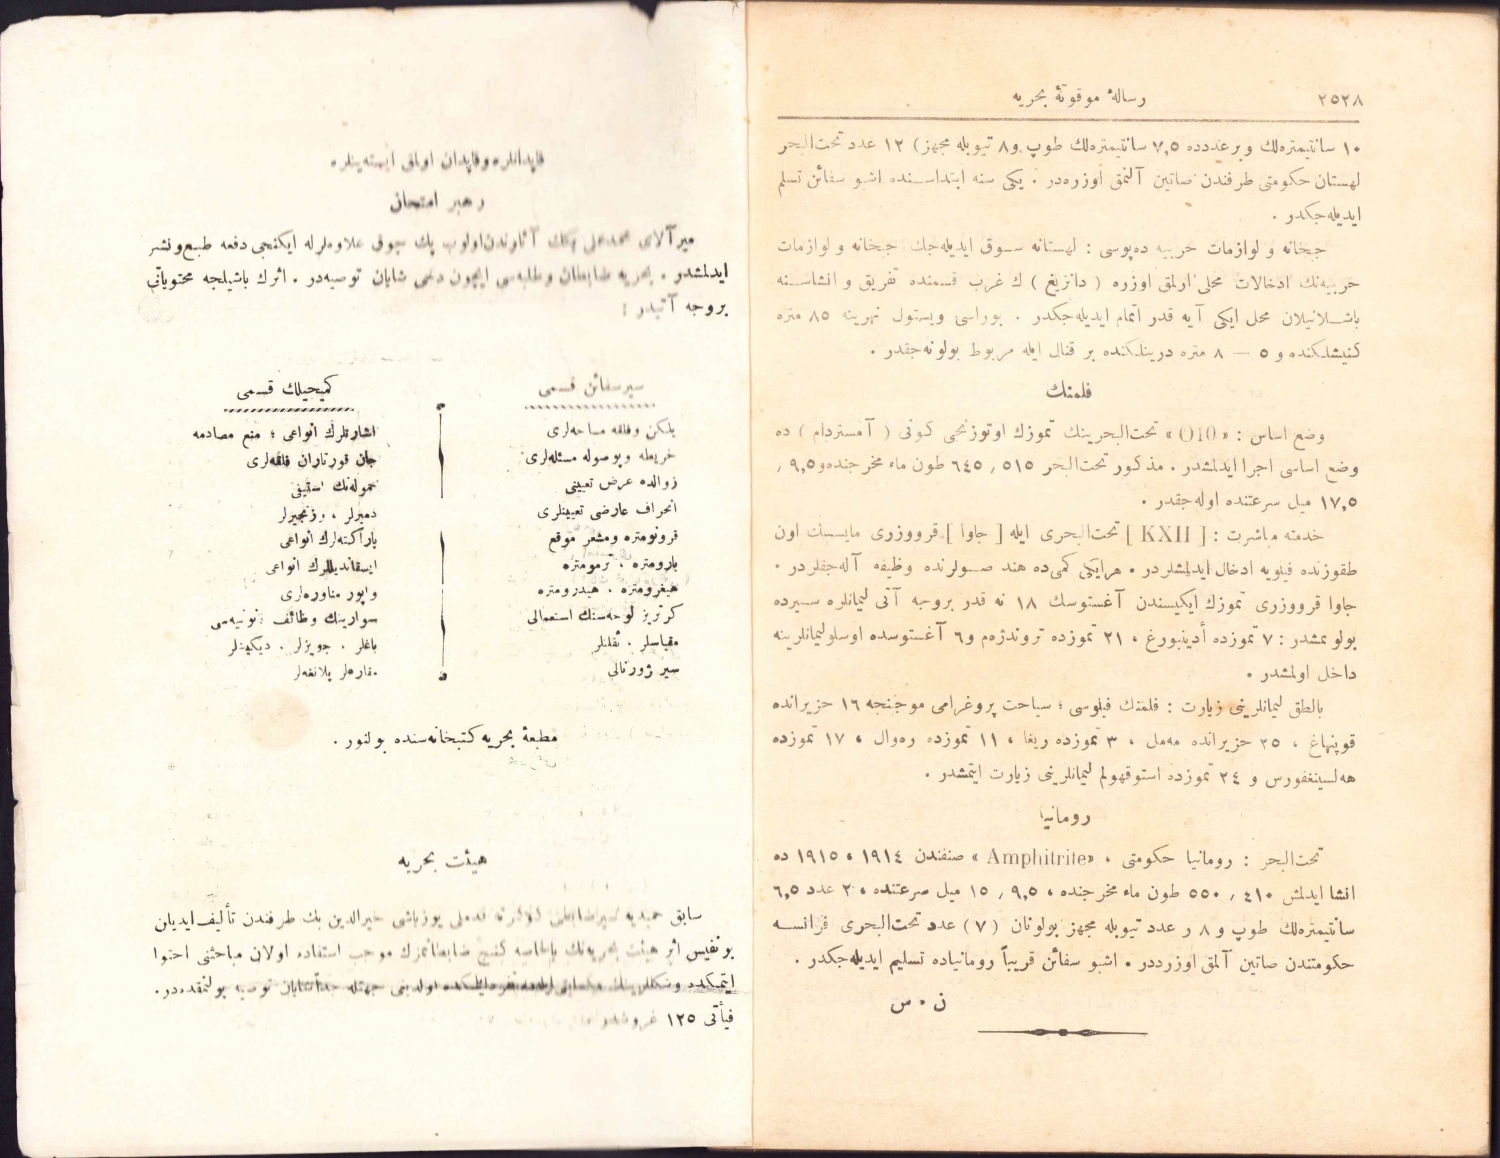 ٢٥٢٨
رسالهٔ موقوتهٔ بحریه
١٠ سانتیمتره‌لك وبر عددده ٧,٥ سانتیمتره‌لك طوپ و٨ تیوبله مجهز) ١٢ عدد تحت‌البحر
لهستان حکومتی طرفندن صاتین آلنمق اوزره‌در . یکی سنه ابتداسنده اشبو سفائن تسلم
ایدیله‌جکدر .
جبخانه و لوازمات حربیه ده‌پوسی : لهستانه سوق ایدیله‌جك جبخانه و لوازمات
حربیه‌نك ادخالات محلی اولمق اوزره ( دانزیغ ) ك غرب قسمنده تفریق و انشاسنه
باشلانیلان محل ایکی آیه قدر اتمام ایدیله‌جکدر . بوراسی ویستول نهرینه ٨٥ متره
کنیشلکنده و ٥ — ٨ متره درینلکنده بر قنال ایله مربوط بولونه‌جقدر .
فلمنك
وضع اساس : «O10» تحت‌البحرینك تموزك اوتوزنجی کونی ( آمستردام ) ده
وضع اساسی اجرا ایدلمشدر . مذکور تحت‌البحر ٥١٥ ر ٦٤٥ طون ماء مخرجنده و٩,٥ ر
١٧,٥ میل سرعتنده اوله‌جقدر .
خدمته مباشرت : [ KXII ] تحت‌البحری ایله [ جاوا ] قرووزری مایسك اون
طقوزنده فیلویه ادخال ایدلمشلردر . هرایکی کمی‌ده هند صولرنده وظیفه آله‌جقلردر .
جاوا قرووزری تموزك ایکیسندن آغستوسك ١٨ نه قدر بروجه آتی لیمانلره سیرده
بولونمشدر : ٧ تموزده أدینبورغ ، ٢١ تموزده تروندژه‌م و٦ آغستوسده اوسلولیمانلرینه
داخل اولمشدر .
بالطق لیمانلرینی زیارت : فلمنك فیلوسی ؛ سیاحت پروغرامی موجبنجه ١٦ حزیرانده
قوپنهاغ ، ٢٥ حزیرانده مه‌مل ، ٣ تموزده ریغا ، ١١ تموزده ره‌وال ، ١٧ تموزده
هه‌لسینغفورس و ٢٤ تموزده استوقهولم لیمانلرینی زیارت ایتمشدر .
رومانیا
تحت‌البحر : رومانیا حکومتی ، «Amphitrite» صنفندن ١٩١٤ ، ١٩١٥ ده
انشا ایدلمش ٤١٠ ر ٥٥٠ طون ماء مخرجنده ، ٩,٥ ر ١٥ میل سرعتنده ، ٢ عدد ٦,٥
سانتیمتره‌لك طوپ و ٨ ر عدد تیوبله مجهز بولونان (٧) عدد تحت‌البحری فرانسه
حکومتندن صاتین آلمق اوزره‌در . اشبو سفائن قریباً رومانیاده تسلیم ایدیله‌جکدر .
ن . س
قاپدانلره وقاپدان اولمق ایسته‌ینلره
رهبر امتحان
میرآلای محمدعلی بكك آثارندن اولوب پك چوق علاوه‌لرله ایکنجی دفعه طبع ونشر
ایدلمشدر . بحریه ضابطان وطلبه‌سی ایچون دخی شایان توصیه‌در . اثرك باشلیجه محتویاتی
بروجه آتیدر :
سیرسفائن قسمی
یلکن وفلقه مساحه‌لری
خریطه وپوصوله مسئله‌لری
زوالده عرض تعیینی
انحراف عارضی تعیینلری
قرونومتره ومشعر موقع
بارومتره ، ترمومتره
هیغرومتره . هیدرومتره
کرتریز لوحه‌سنك استعمالی
مقیاسلر . ثقلتلر
سیر ژورنالی
کمیجیلك قسمی
اشارتلرك انواعی ؛ منع مصادمه
جان قورتاران فلقه‌لری
حموله‌نك استیفی
دمیرلر ، وزنجیرلر
پاراکته‌لرك انواعی
ایسقاندیللرك انواعی
واپور مناوره‌لری
سوارینك وظائف قانونیه‌سی
باغلر . جویزلر . دیکیشلر
مقاره‌لر پلانغه‌لر
مطبعهٔ بحریه کتبخانه‌سنده بولنور .
هیئت بحریه
سابق حمیدیه یوزباشی خیرالدین بك طرفندن تألیف ایدیلن
بو نفیس اثر هیئت بحریه‌نك بالخاصه کنج ضابطانمزك موجب استفاده اولان مباحثنی احتوا
ایتمکده اولدیغی جهتله جداً شایان توصیه بولنمقده‌در .
فیأتی ١٢٥ غروشدر